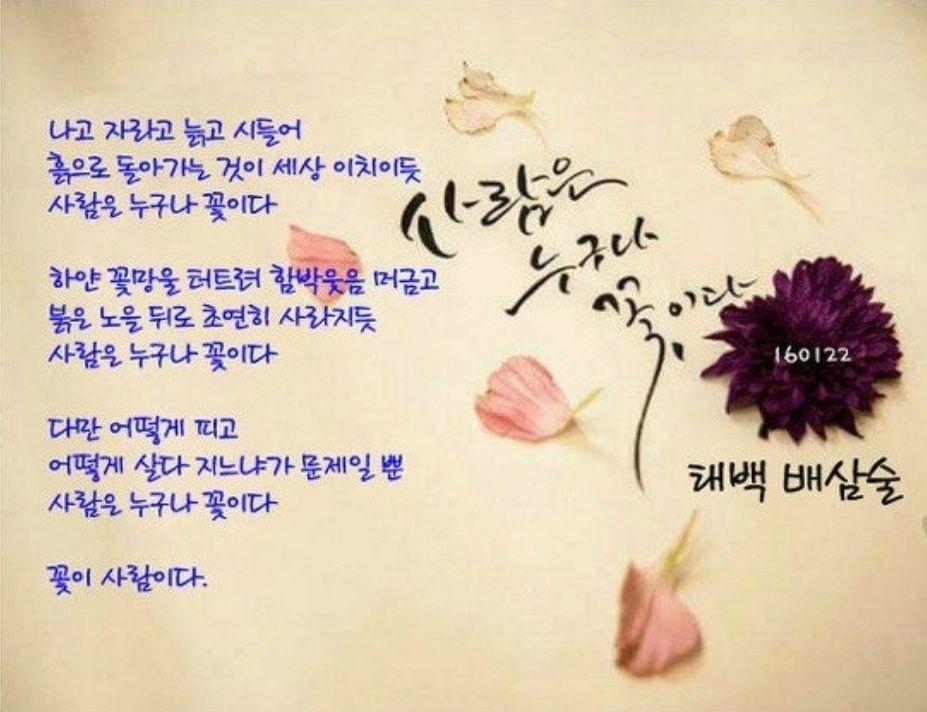 나고 자라고 늙고 시들어
흙으로 돌아가는 것이 세상 이치이듯
사람은 누구나 꽃이다
하얀 꽃망울 터트려 함박웃음 머금고
붉은 노을 뒤로 초연히 사라지듯
사람은 누구나 꽃이다
다만 어떻게 피고
어떻게 살다 지느냐가 문제일 뿐
사람은 누구나 꽃이다
꽃이 사람이다.
사람은
누구나
꽃이다
160122
태백 배삼술